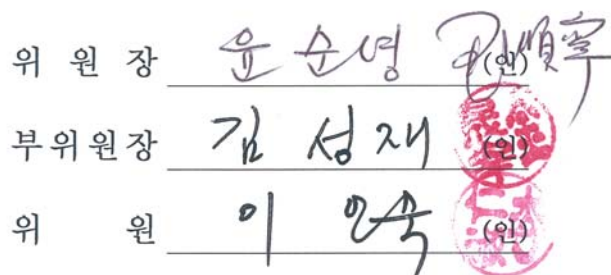 위 원 장 윤 순 녕 (인)
부위원장 김 성 재 (인)
위 원 이 인숙 (인)